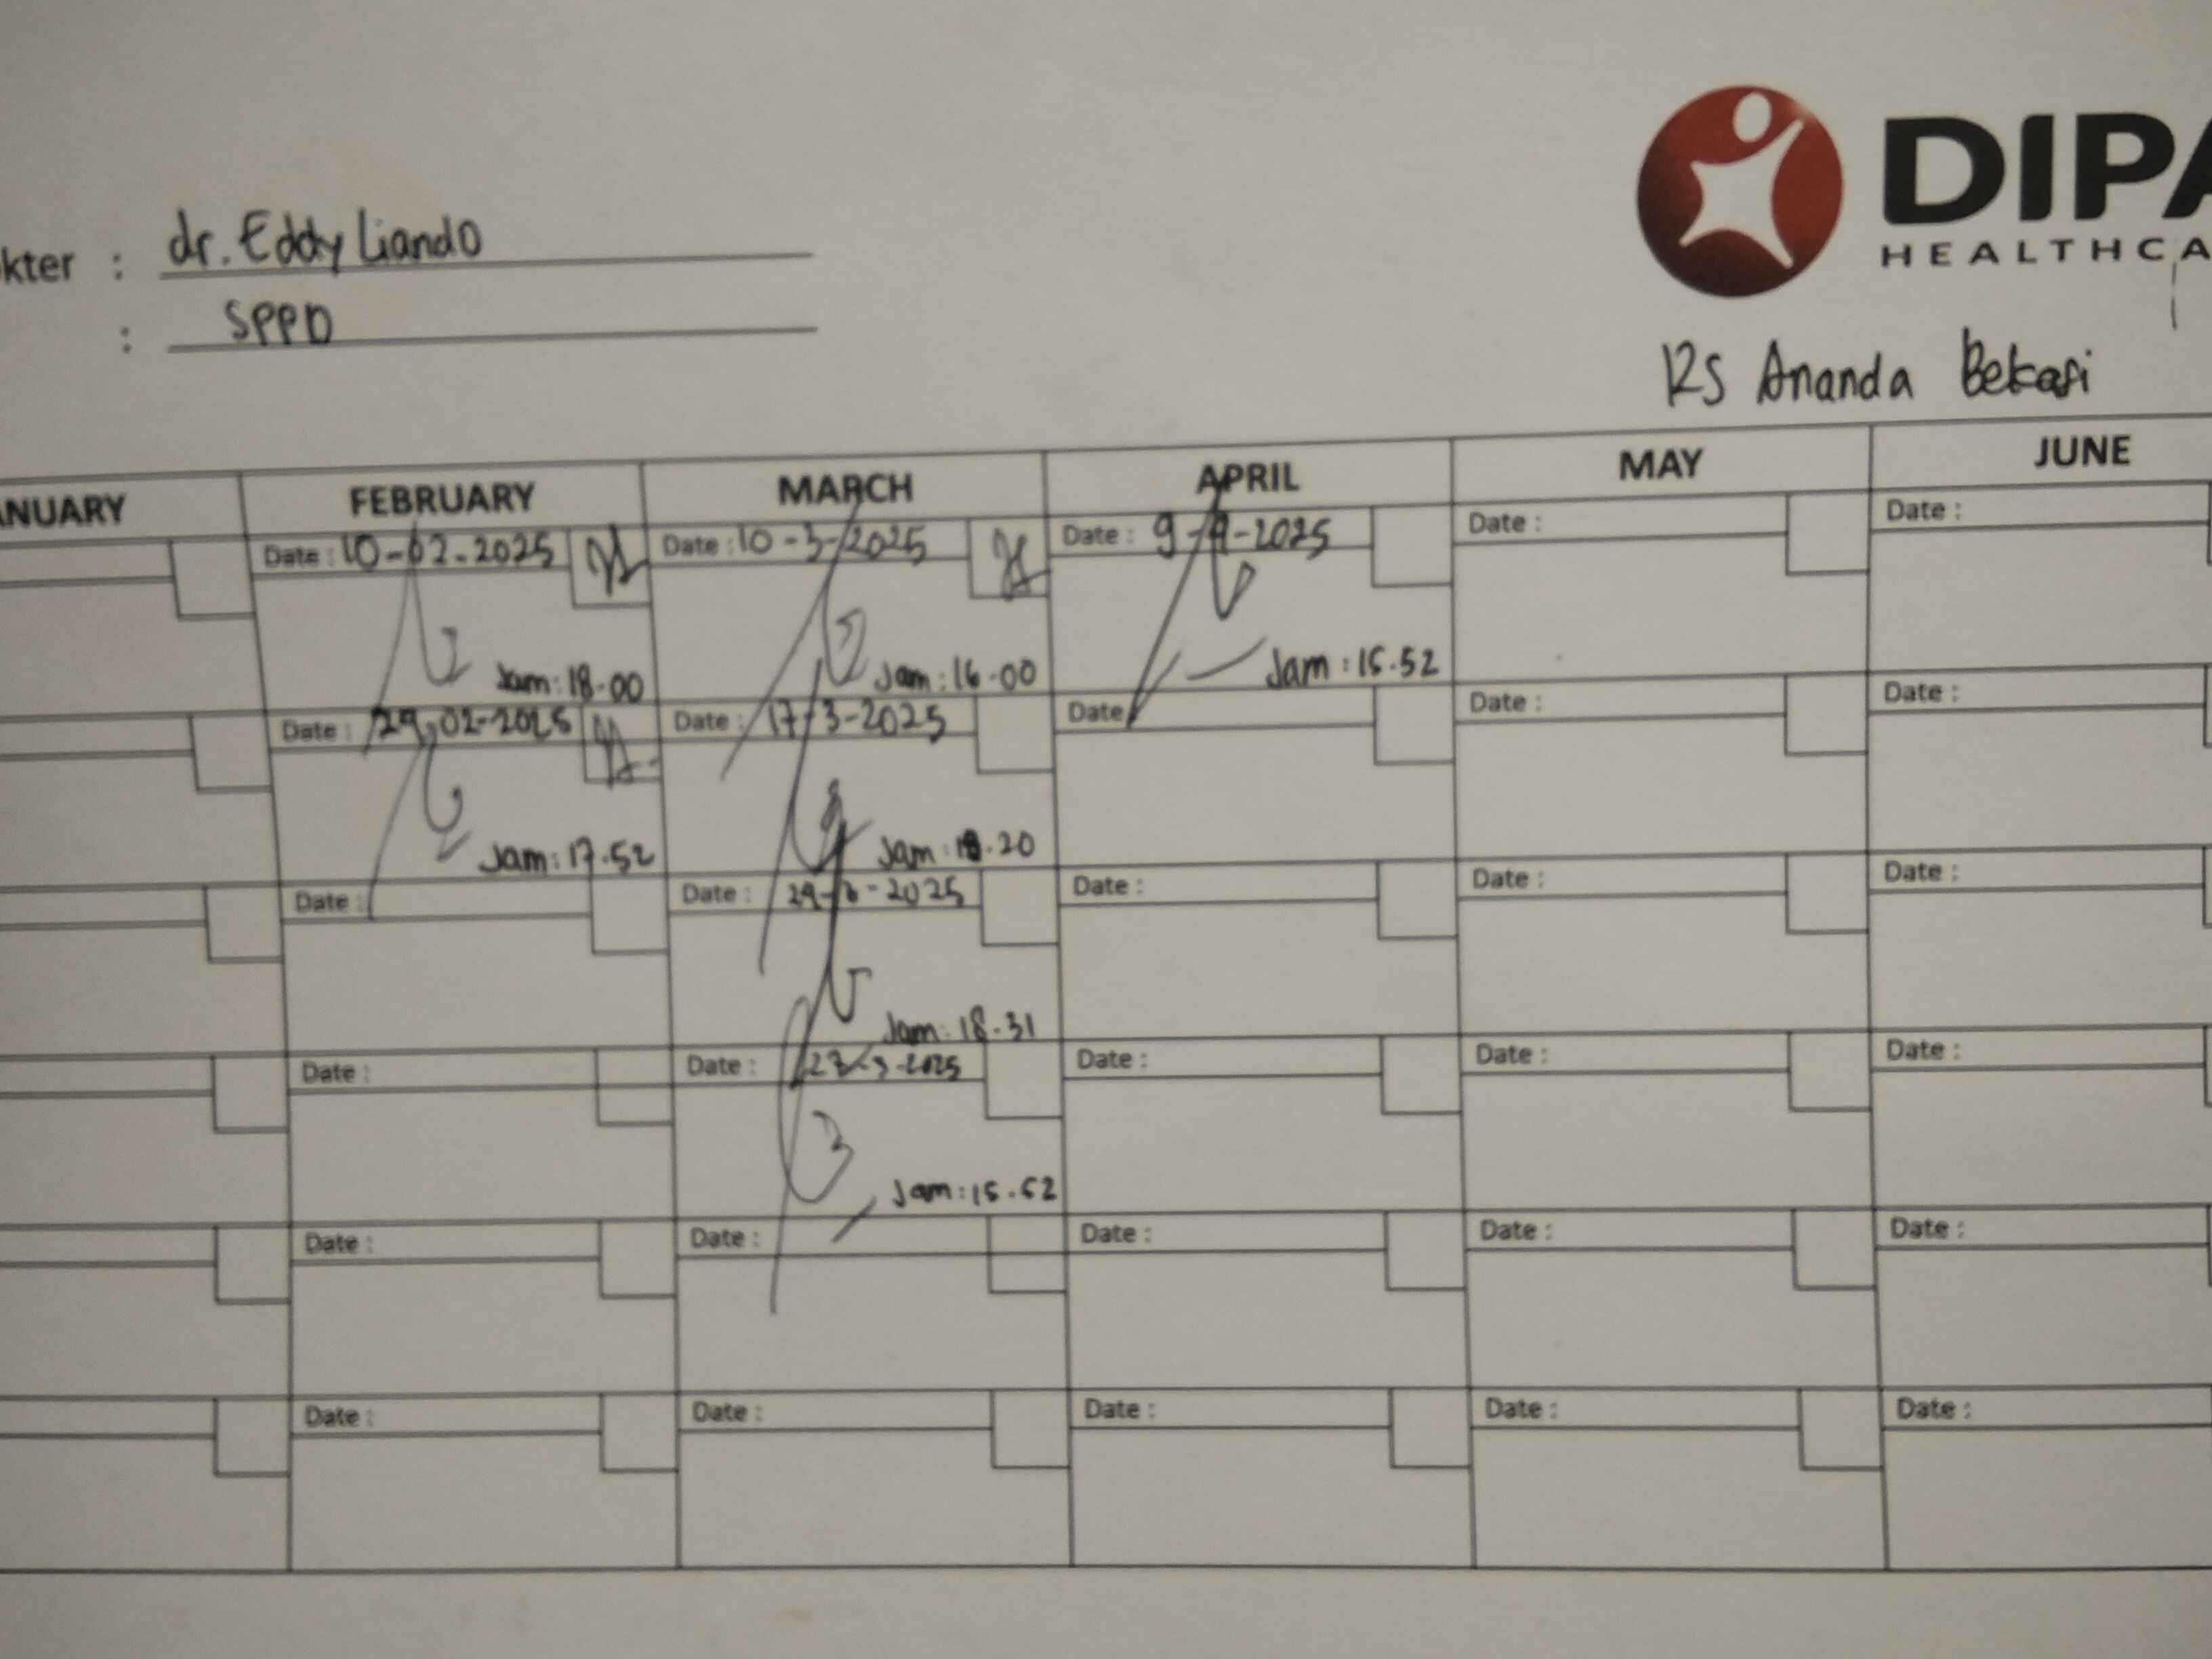 DIPA
HEALTHCA
kter : dr. Eddy Liando
: SPPD
RS Ananda Bekasi
ANUARY FEBRUARY MARCH APRIL MAY JUNE
Date : 10-02-2025 Date : 10-3-2025 Date : 9-4-2025 Date : Date :
Jam : 18.00 Jam : 16.00 Jam : 15.52
Date : 24-02-2025 Date : 17-3-2025 Date Date : Date :
Jam : 17.52 Jam : 18.20
Date : Date : 24-3-2025 Date : Date : Date :
Jam : 18.31
Date : Date : 27-3-2025 Date : Date : Date :
Jam : 15.52
Date : Date : Date : Date : Date :
Date : Date : Date : Date : Date :